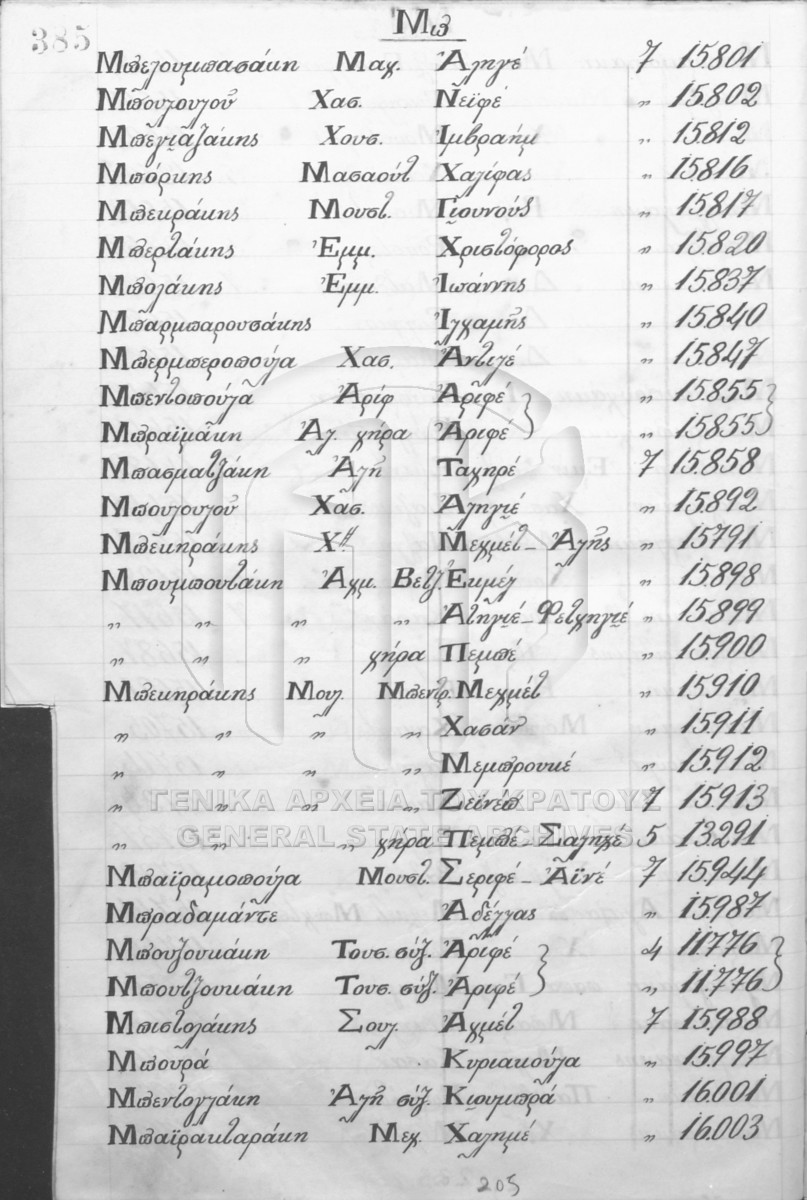 385
Μπ
Μπελουμπασάκη Μαχ. Ἀληγέ 7 15.801
Μπουλουλοῦ Χασ. Νεϊφέ " 15.802
Μπεγιαζάκης Χουσ. Ἰμβραήμ " 15.812
Μπόρκης Μασαούτ Χαλίφας " 15816
Μπεκράκης Μουστ. Γιουνούς " 15.817
Μπερτάκης Ἐμμ. Χριστόφορος " 15.820
Μπολάκης Ἐμμ. Ἰωάννης " 15.837
Μπαρμπαρουσάκης Ἰλχαμῆς " 15.840
Μπερμπεροπούλα Χασ. Ἀντιλέ " 15.847
Μπεντοπούλα Ἀρίφ Ἀριφέ " 15.855
Μπραϊμάκη Ἀλ. χήρα Ἀριφέ " 15855
Μπασματζάκη Ἀλῆ Ταχηρέ 7 15.858
Μπουλουλοῦ Χασ. Ἀληγιέ " 15.892
Μπεκηράκης Χ" Μεχμέτ - Ἀλῆς " 15791
Μπουμπουτάκη Ἀχμ. Βετζ. Ἐκμέλ " 15.898
" " " " Ἀτηγιέ - Φετχηγιέ " 15.899
" " " χήρα Πεμπέ " 15.900
Μπεκηράκης Μουλ. Μπεντρ. Μεχμέτ " 15.910
" " " " Χασάν " 15.911
" " " " Μεμπρουκέ " 15.912
" " " " Ζεϊνέπ 7 15.913
" " " χήρα Πεμπέ - Σαληχέ 5 13.291
Μπαϊραμοπούλα Μουστ. Σεριφέ - Ἀϊνέ 7 15.944
Μπραδαμάντε Ἀδέλγας " 15.987
Μπουζουκάκη Τουσ. σύζ. Ἀριφέ 4 11776
Μπουτζουκάκη Τουσ. σύζ. Ἀριφέ " 11.776
Μπιστολάκης Σουλ. Ἀχμέτ 7 15.988
Μπουρᾶ Κυριακούλα " 15.997
Μπεντολλάκη Ἀλῆ σύζ. Κιουμπρᾶ " 16.001
Μπαϊρακταράκη Μεχ. Χαλημέ " 16.003
205
ΓΕΝΙΚΑ ΑΡΧΕΙΑ ΤΟΥ ΚΡΑΤΟΥΣ
GENERAL STATE ARCHIVES